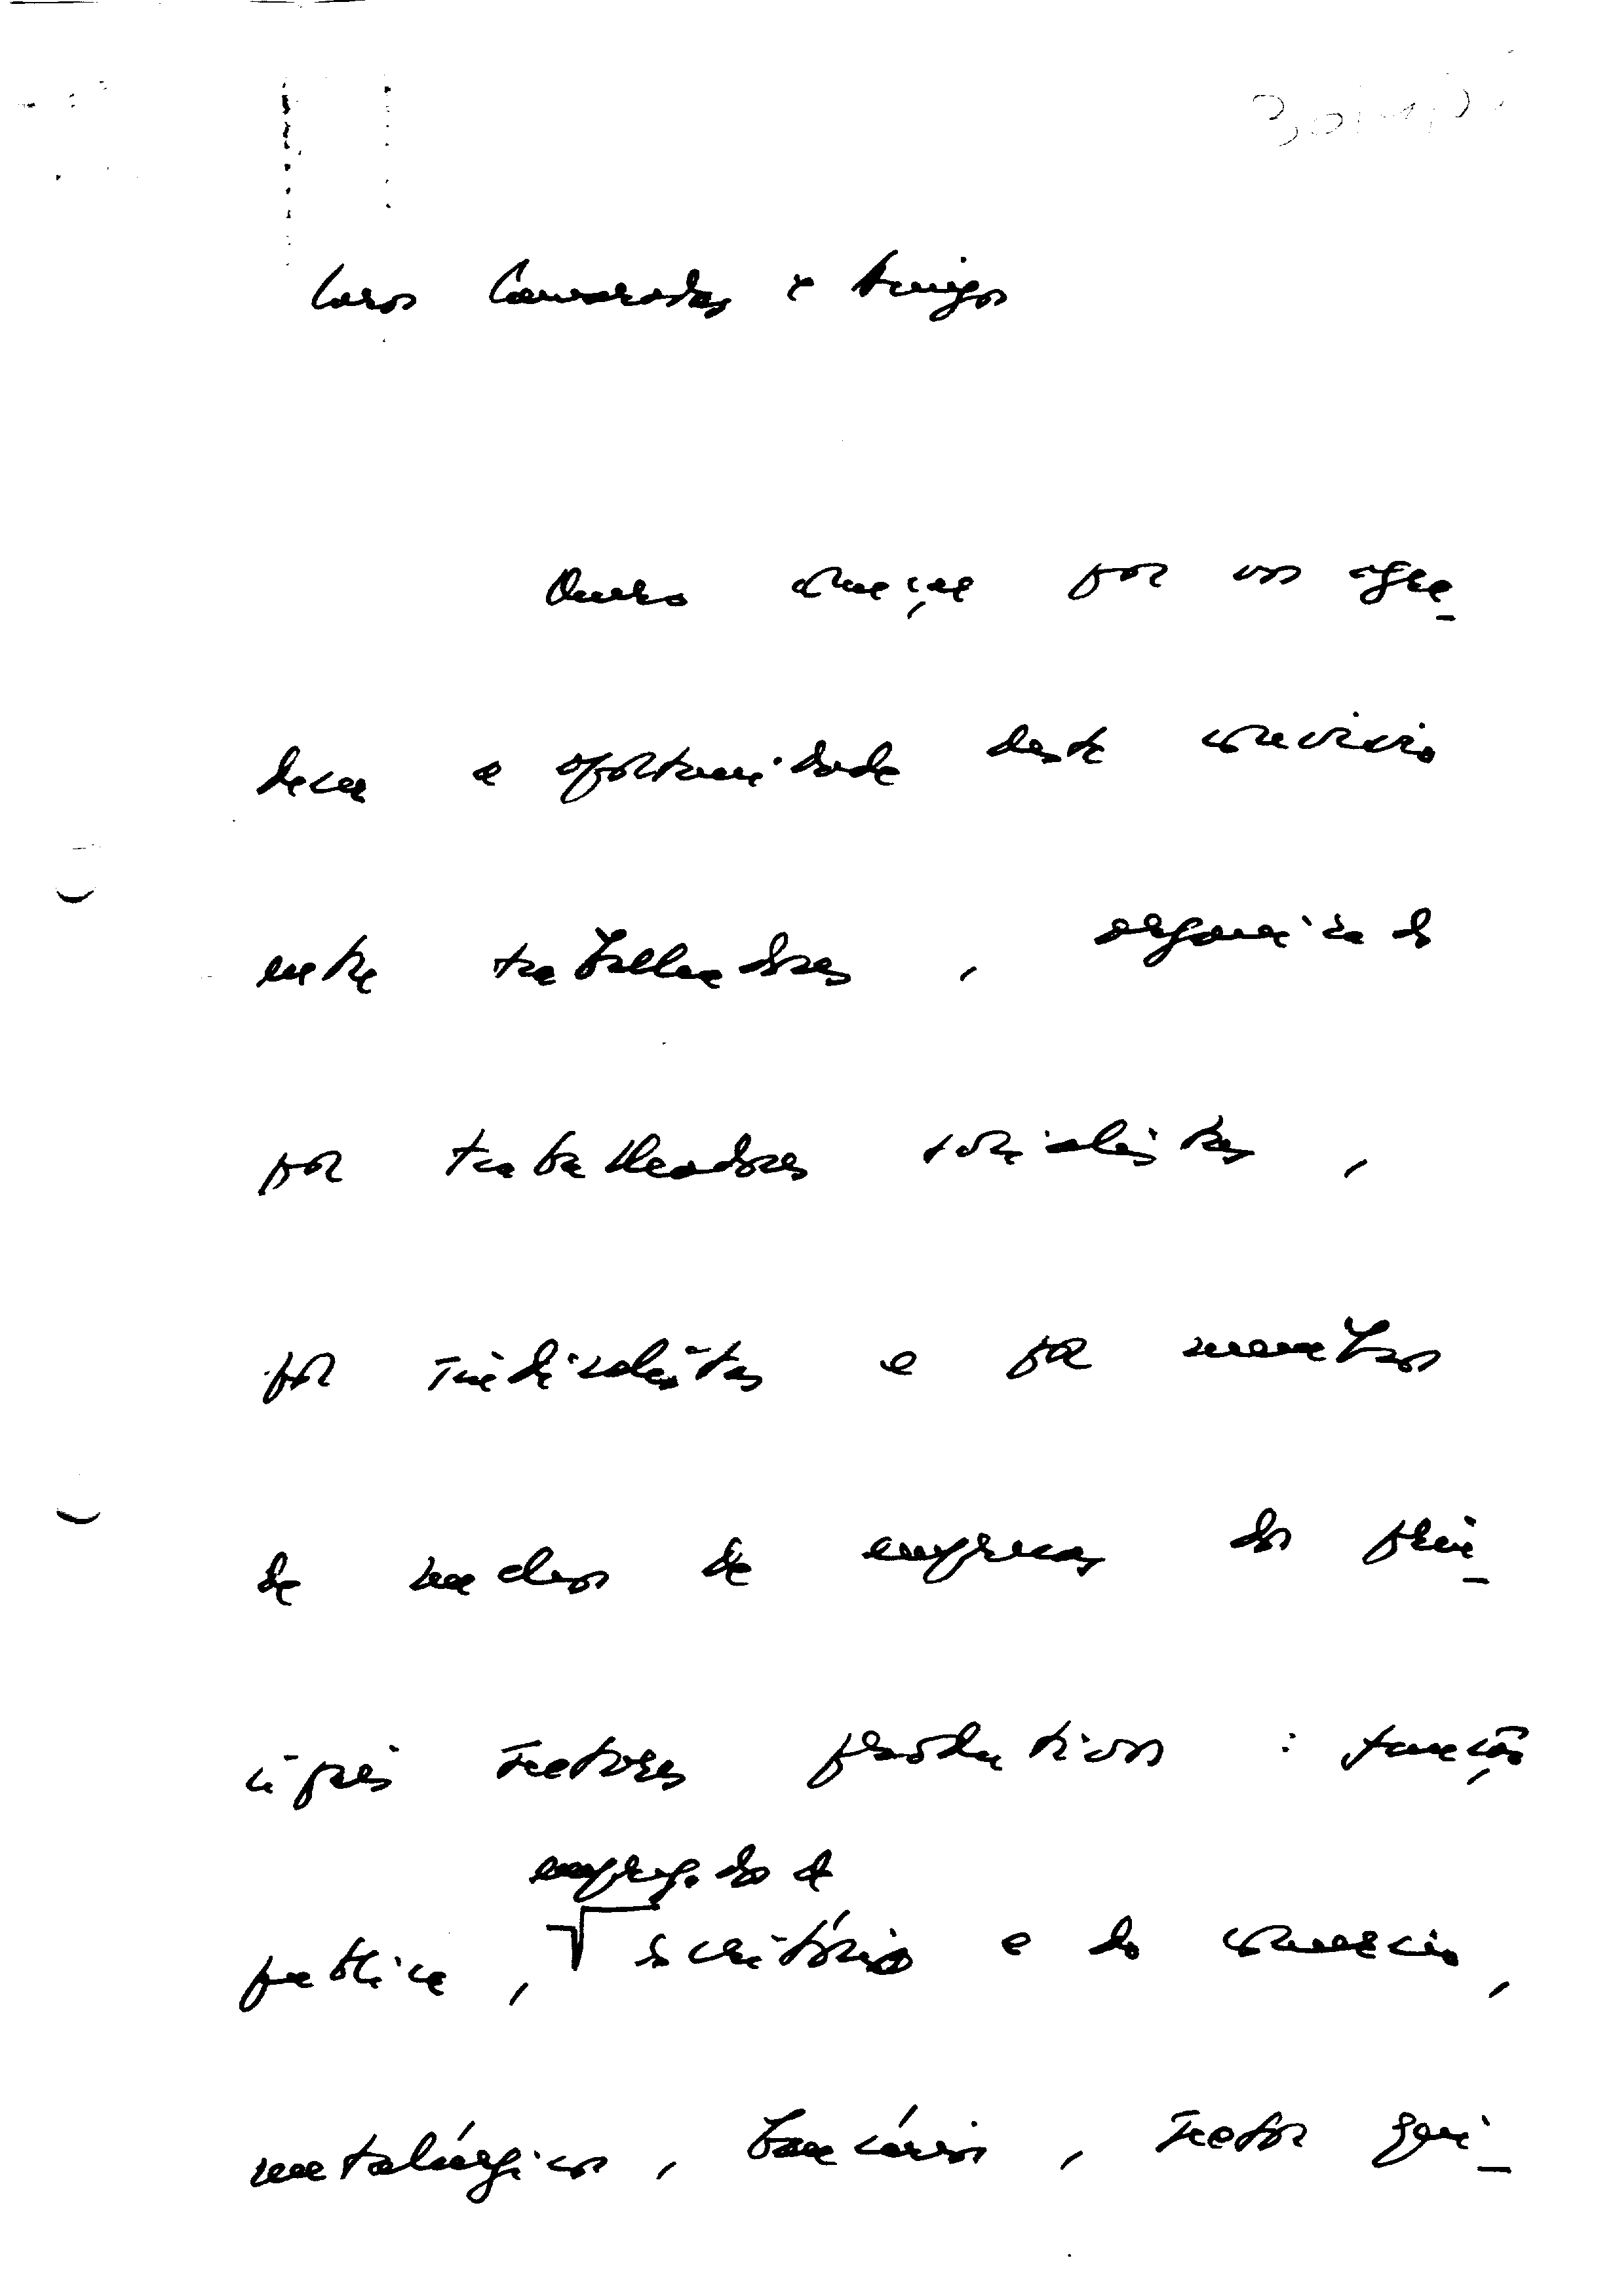 Caros Camaradas e Amigos
Quero começar por vos agra-
decer a oportunidade deste convívio
entre trabalhadores, organizado
por trabalhadores socialistas,
por sindicalistas e por membros
de nucleos de empresas dos prin-
cipais sectores productivos : função
empregados de
publica, escritório e do comercio,
metalúrgicos, bancários, sector quí-